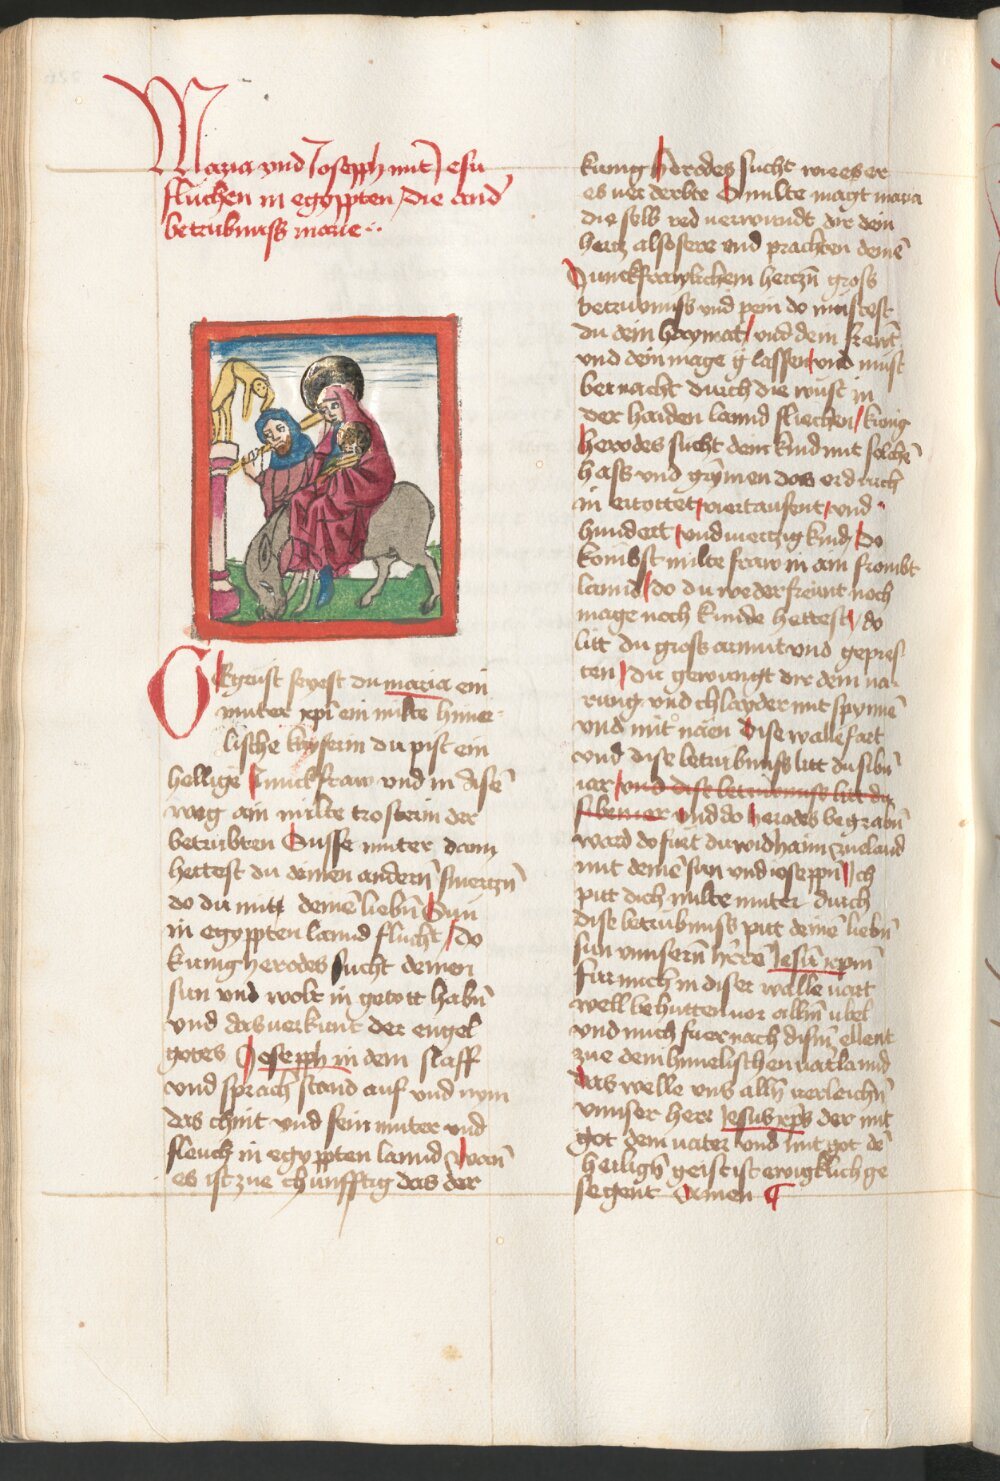 Maria vnd Joseph mit Jesu
fluchen in egyppten / Die and̕
betrubnuss marie ··
Gegrust seyest du maria ein
muter xpi ein milte hime-
lische kayserin du pist ein
heilige Junckfraw vnd in disē
weg ain milte trosterin der
betrubten Susse muter dann
hettest du deinen andern̄ smerczn̄
do du mitt deinē liebn̄ Sun
in egyppten lannd fluchst / do
kunig herodes sucht deinen
sun vnd wolt in getott habn̄
vnd das verkunt der engel
gotes Joseph in dem slaff
vnd sprach stand auf vnd nym
das chint vnd sein muter vnd
fleuch in egyppten lannd wann̄
es ist zue chunfftig das der
kunig Herodes sucht wie es er
es verderbte O milte magt maria
die selb red verwundt dir dein
hertz alsofere vnd prachten deinē
Junckfrawlichem hertzn̄ gross
betrubnuss vnd pein do muestest
du dein haymat / vnd dein frewnt
vnd dein mage ꝫ lassen / vnd must
bei nacht durch die wust in
der haiden lannd fliechen / kunig
herodes sucht dein kind mit solchē
hass vnd grymen das er durch
in ertottet / viertausent / vnd
hundert / vnd viertzig kind / Do
kombst milte fraw in ain frombt
lannd / do du weder frewnt noch
mage noch kunde hettest / do
litt du gross armut vnd gepres
ten / du gewungt dir dein na
rung vnd chlayder mit spynnē
vnd mit naen dise walle fart
vnd dise betrubnuss litt du sibn̄
iar / vnd dise betrubnuss litt du
siben iar vnd do herodes begrabn̄
ward do fuert du wid haim zu eland
mit deinē sun vnd iosepphn̄ Ich
pitt dich milte muter durch
dise betrubnuss pitt deinē liebn̄
sun vnnsern̄ hr̄rē Jesū xpm̄
für mich in diser walle vart
well behutten vor allm̄ vbel
vnd mich fuer nach dism̄ ellent
zue dem himelischen vatterlannd
das welle vns alln̄ verleichn̄
vnnser herr Jesus xp̄s der mit
got dem vater vnd mit got dē
heilign̄ geist ist ewigklich ge
segent Amen